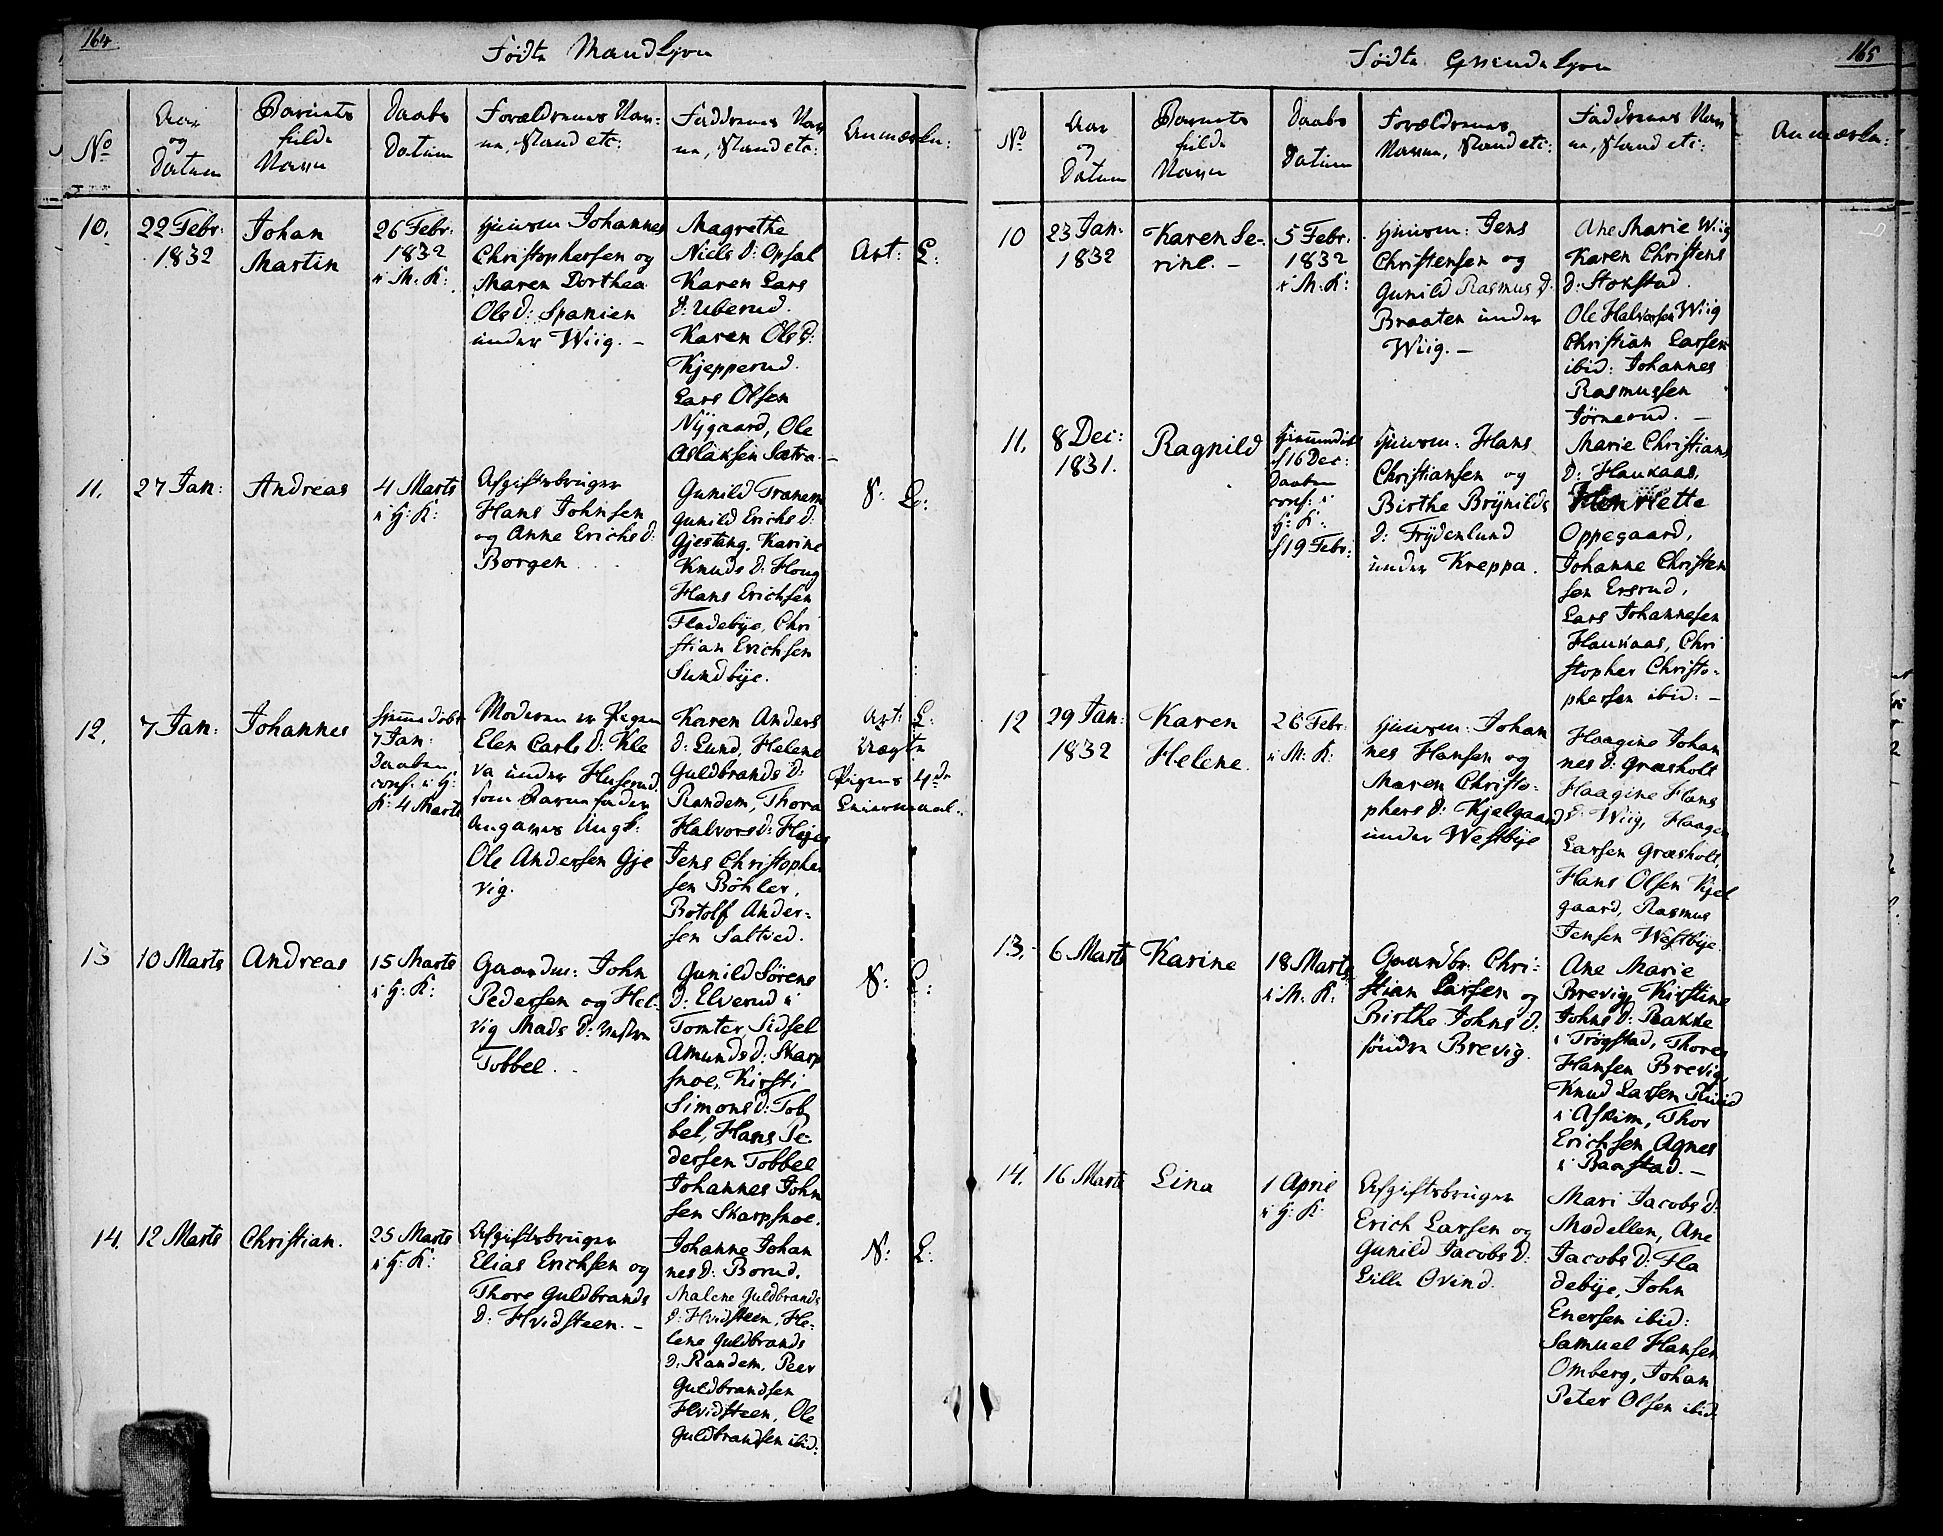 164
Fødte Mandkjøn
No
Aar
og
Datum
Barnets
fulde
Navn
Daabs
Datum
Forældrenes Nav=
ne, Stand etc:
Faddrenes Nav
ne, Stand etc:
Anmærkn:
10.
22 Febr:
1832
Johan
Martin
26 Febr:
1832
i M. K:
Huusm Johannes
Christophersen og
Maren Dorthea
Ols D: Spanien
under Wiig. –
Magrethe
Niels D: Opsal
Karen Lars
D: Uberud.
Karen Ols D:
Kjepperud.
Lars Olsen
Nÿgaard, Ole
Aslaksen Sætra. –
Ast: L:
11.
27 Jan:
Andreas
4 Marts
i H: K:
Afgiftsbruger
Hans Johnsen
og Anne Erichs D:
Borgen
Gunild Tranem
Gunild Erichs D:
Gjestang, Karine
Knuds D: Houg
Hans Erichsen
Fladebÿe, Chri
stian Erichsen
Sundbÿe.
S: L:
12.
7 Jan:
Johannes
Hjemmedøbt
7 Jan:
Daaben
conf. i H:
K: 4 Marts
Moderen er Pigen
Elen Carls D: Kle
va under Huserud
som Barnefader
angaves Ungk:
Ole Andersen Gje
vig.
Karen Anders
D: Lund, Helene
Guldbrands D:
Randem, Thora
Halvors D: Heÿer
Jens Christopher
sen Böhler,
Botolf Ander=
sen Saltved.
Ast: L:
Uægte
Pigens 4de
Leiermaal.
13
10 Marts
Andreas
15 Marts
i H: K:
Gaardm: John
Pedersen og Hel=
vig Mads D: Vestre
Tobbel.
Gunild Sörens
D: Elverud i
Tomter Sidsel
Amunds D: Skarp
snoe, Kirsti
Simons D: Tob
bel, Hans Pe
dersen Tobbel
Johannes John
sen Skarpsnoe.
S: L:
14.
12 Marts
Christian.
25 Marts
i H: K:
Afgiftsbruger
Elias Erichsen og
Thore Guldbrands
D: Hvidsteen. –
Johanne Johan
nes D: Borud.
Malene Guldbrands
D: Hvidsteen, He=
lene Guldbrands
D: Randem, Peer
Guldbrandsen
Hvidsteen, Ole
Guldbrandsen ibid:
S: L:
165
Fødte Qvindekjøn
No
Aar
og
Datum
Barnets
fulde
Navn
Daabs
Datum
Forældrenes
Navne, Stand etc:
Faddrenes Nav
ne, Stand etc:
Anmærkn:
10
23 Jan:
1832
Karen Se=
rine. –
5 Febr:
1832
i M. K:
Huusm: Jens
Christensen og
Gunild Rasmus D:
Braaten under
Wiig. –
Ane Marie Wiig
Karen Christens
D: Stokstad.
Ole Halvorsen Wiig
Christian Larsen
ibid: Johannes
Rasmussen
Törnerud. –
11.
8 Dec:
1831.
Ragnild
Hjemmedøbt
d 16 Dec:
Daaben
conf: i
H: K:
d 19 Febr:
Huusm: Hans
Christiansen og
Birthe Brÿnilds
D: Frÿdenlund
under Kreppa.
Marie Christians
D: Haukaas,
Henriette
Oppegaard,
Johanne Christen
sen Ersrud,
Lars Johannesen
Haukaas, Chri
stopher Christo=
phersen ibid: –
12
29 Jan:
1832
Karen
Helene.
26 Febr:
i M: K:
Huusm: Johan
nes Hansen og
Maren Christo=
phers D: Kjelgaard
under Westbÿe
Haagine Johan
nes D: Græsholt
Haagine Hans
D: Wiig, Haagen
Larsen Græsholt,
Hans Olsen Kjel
gaard, Rasmus
Jensen Westbÿe.
13.
6 Marts
Karine
18 Marts
i M. K:
Gaardbr: Chri=
stian Larsen og
Birthe Johns D:
søndre Brevig.
Ane Marie
Brevig, Kirstine
Johns D: Rakke
i Trögstad, Thore
Hansen Brevig
Knud Larsen Ruud
i Askim, Thor
Erichsen Agnes
i Baastad. –
14.
16 Marts
Lina
1 April
i H: K:
Afgiftsbruger
Erich Larsen og
Gunild Jacobs D:
Lille Ovind.
Mari Jacobs D:
Modellen, Ane
Jacobs D: Fla
debÿe, John
Enersen ibid:
Samuel Hansen
Omberg, Johan
Peter Olsen ibid.